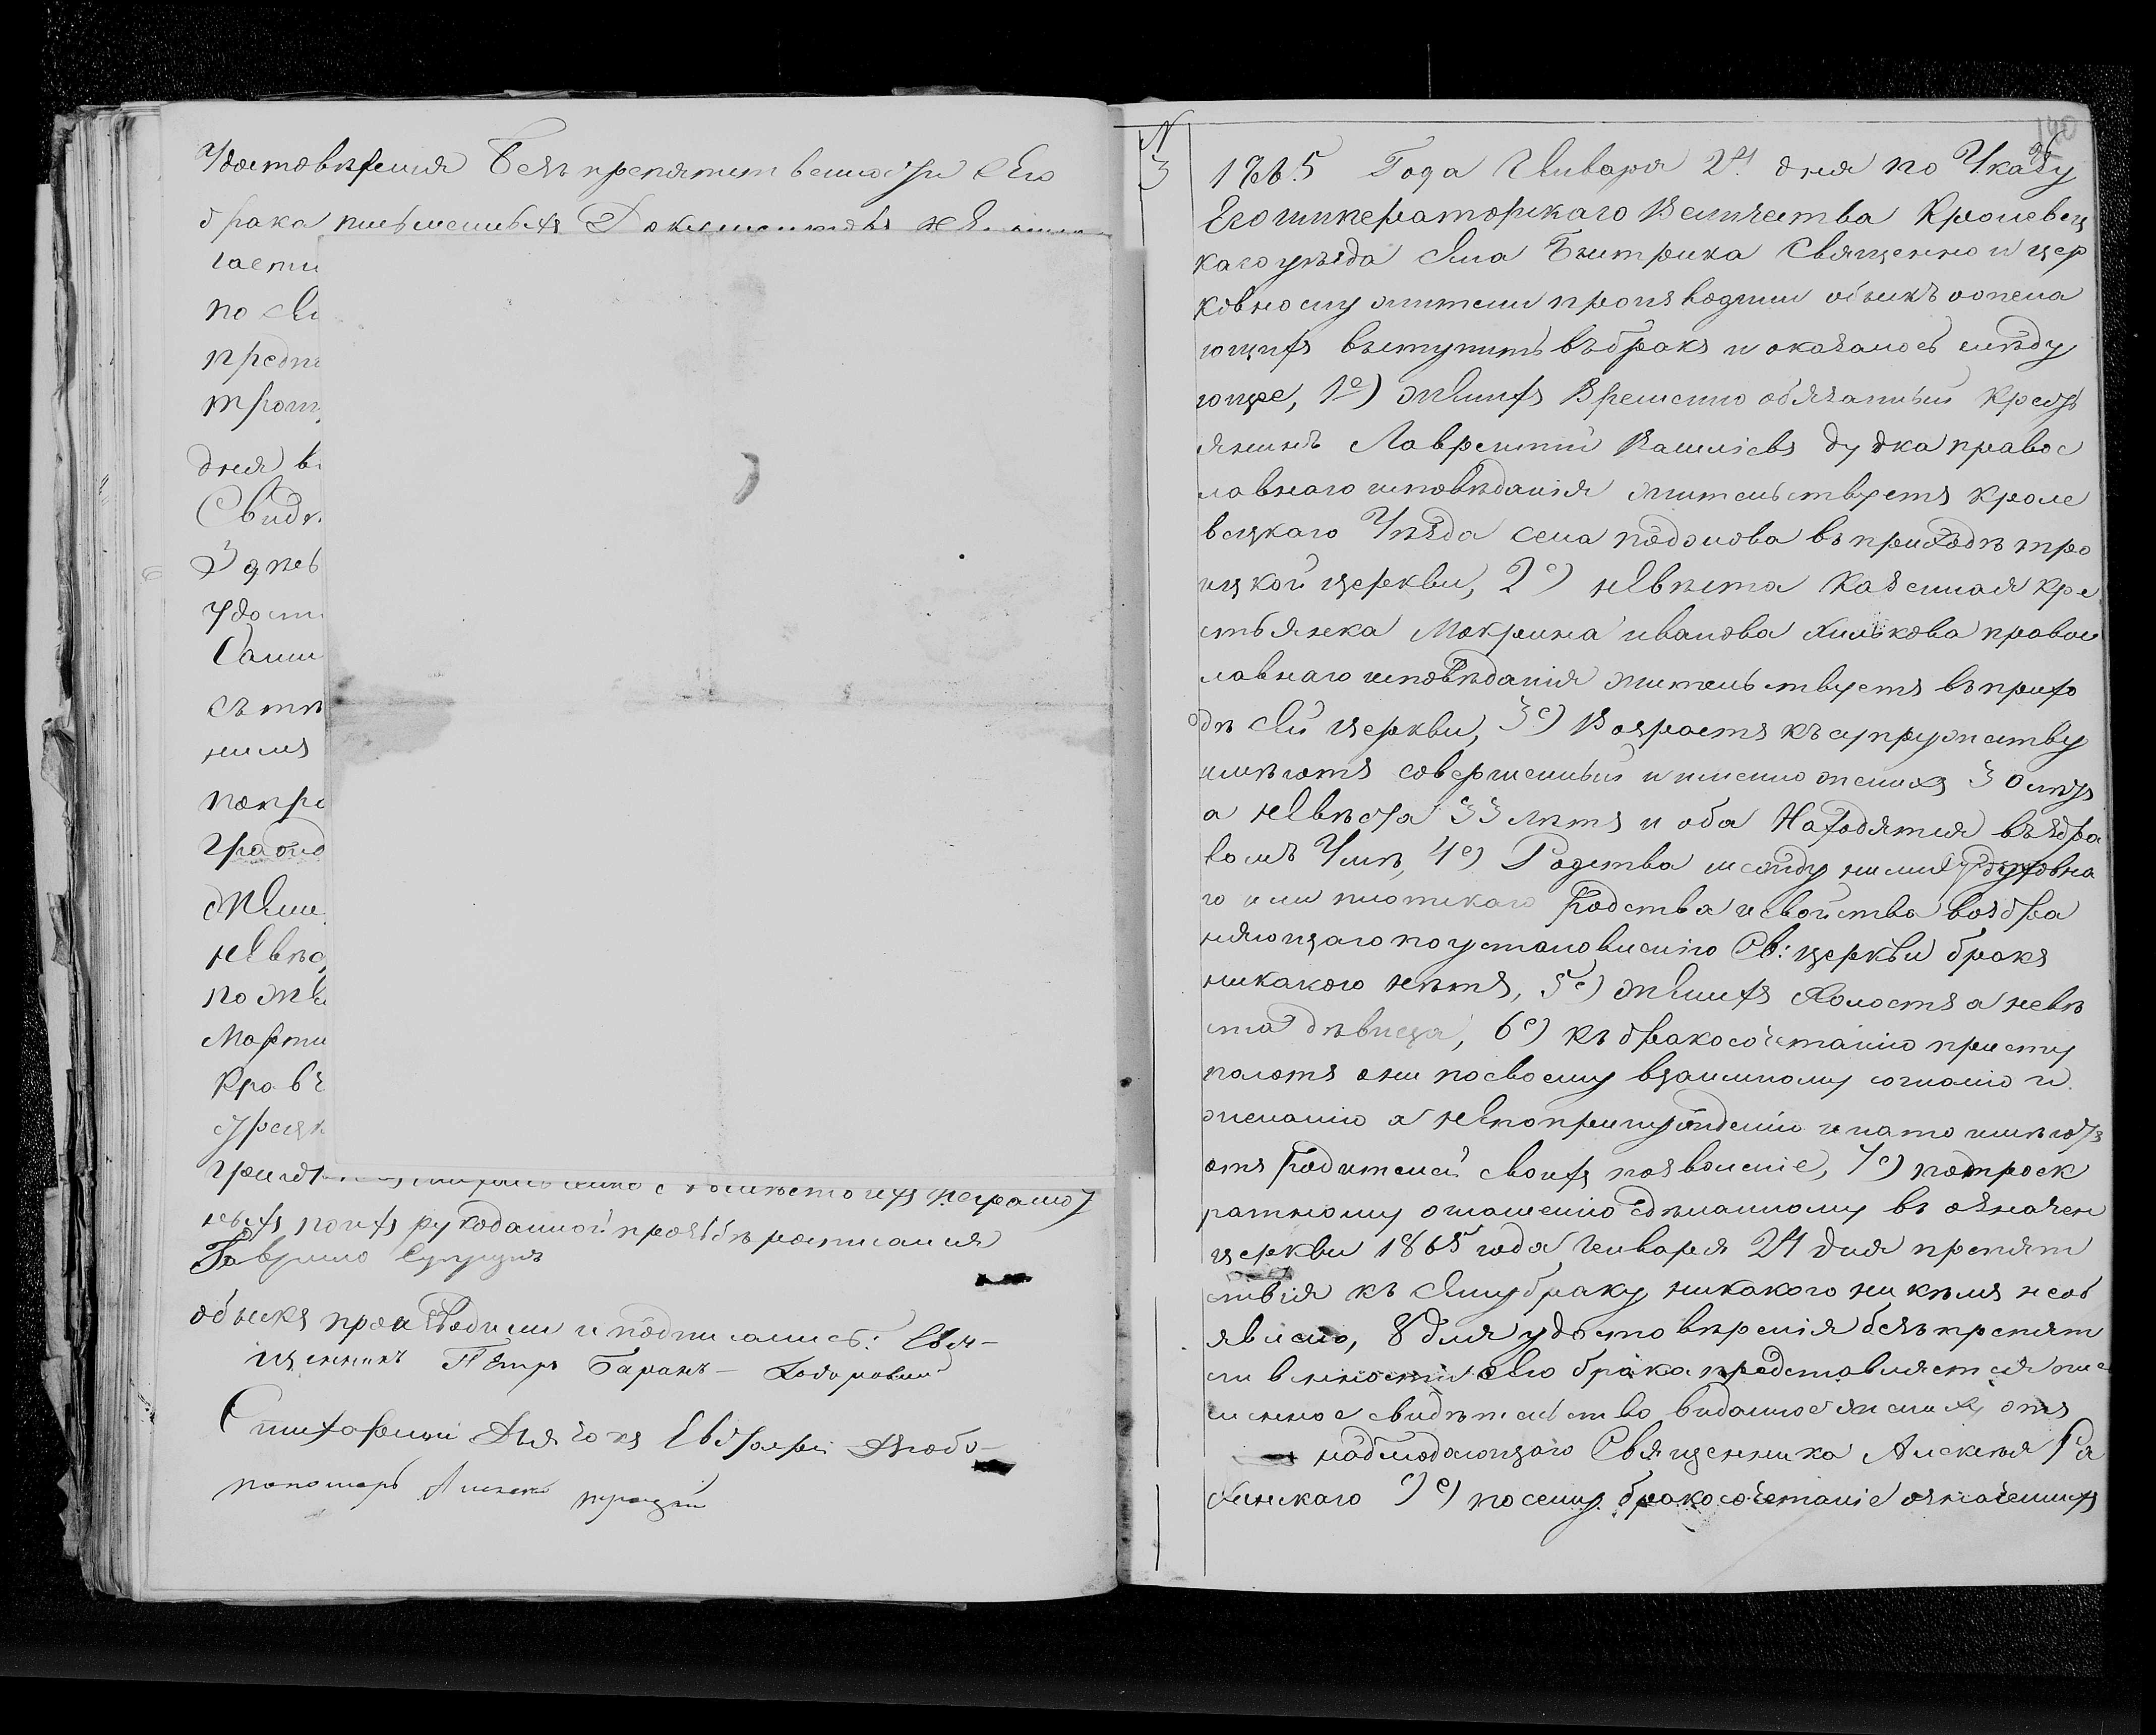 Удостовѣренія Безъ препятственности сего
брака письменныхъ Документовъ
гаети
по
предпи
трои
дня въ
Свидѣ
3 дней
удост
Самы
съ тѣ
ними
попре
гражд
жени
невѣс
по же
Марти
Кравч
греця
ныхъ поихъ рукоданной прозьбѣ росписался
Гаврило
обыскъ производили и подписались: Свя-
щенникъ Петръ Баранъ - Ходоровский
Стихарный Дьячокъ
пономарь
140
N
3
1865 Года Января 24 дня по Указу
Его императорскаго Величества Кролевец
каго уѣзда села Быстрика Священно и цер
ковно служители производили обыскъ о жела
ющихъ вступить въ бракъ и оказалось слѣду
ющее, 1е) женихъ Временно обязанный Крестъ
янинъ Лаврентий Василіевъ дудка правос
лавнаго исповѣданія жительствуетъ кроле
вецкаго Уѣзда села подолова въ приходѣ тро
ицкой церкви, 2е) невѣста Казенная кре
стьянка Мокрина иванова хилькова правос
лавнаго исповѣданія жительствуетъ въ прихо
дѣ сей церкви, 3е) Возрастъ къ супружеству
имѣютъ совершенный и именно женихъ 30 лѣтъ
а невѣста 33 лѣтъ и оба Находятся въ здра
вомъ Умѣ, 4е) Родства между ними духовна
го или плотскаго родства и свойства возбра
няющаго по установленію Св: церкви бракъ
никакого нѣтъ, 5е) женихъ холостъ а невѣ
ста дѣвица, 6е) къ бракосочетанію присту
паютъ они по своему взаимному согласію и
желанію а не по принужденію и на то имѣютъ
отъ родителей своихъ позволеніе, 7е) по троек
ратному оглашенію сдѣланному въ означен
церкви 1865 года Января 24 дня препят
ствія къ сему браку никакого ни кѣмъ необ
явлено, 8 для удостовѣренія безъ препят
ственности сего брака представляется пис
менное свидѣтельство виданное жениху отъ
наблюдающаго Священника Алексѣя Ра
хинскаго 9е) по сему бракосочетаніе означенныхъ